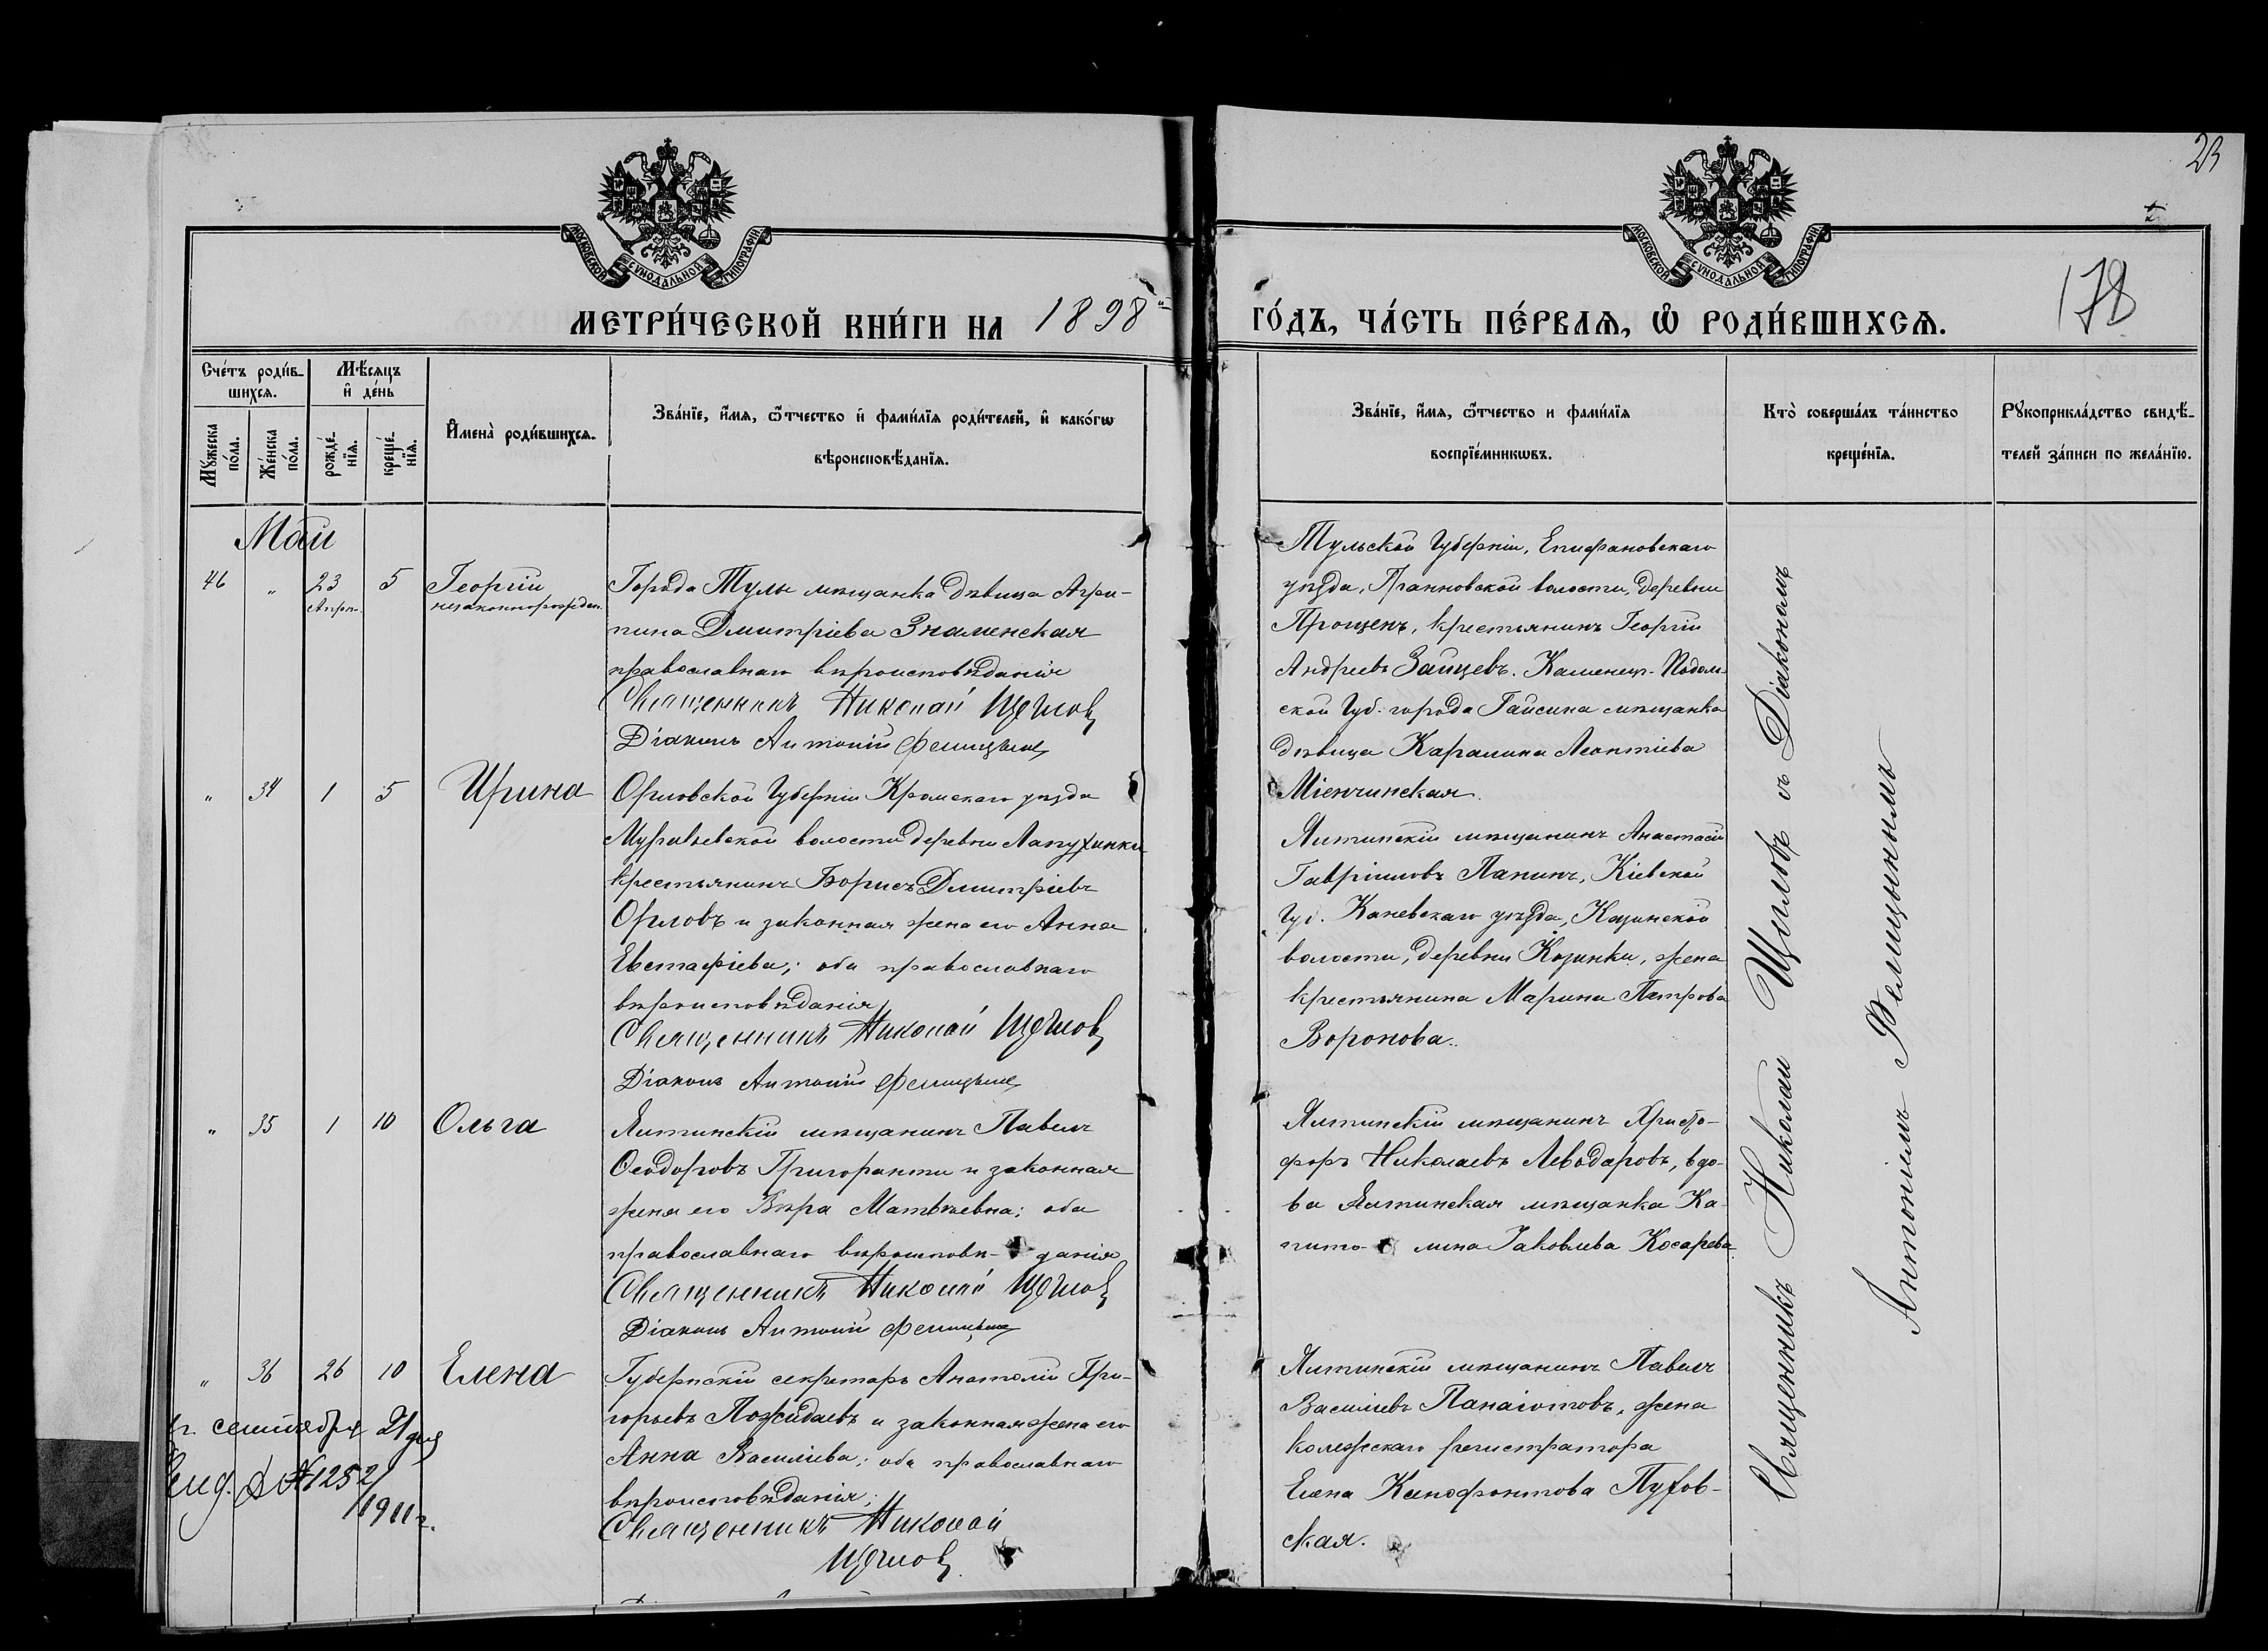 23
178
МОСКОВСКОЙ СѴНОДАЛЬНОЙ ТИПОГРАФІИ
МОСКОВСКОЙ СѴНОДАЛЬНОЙ ТИПОГРАФІИ
МЕТРИ́ЧЕСКОЙ КНИ́ГИ НА 1898й
ГО́ДЪ, ЧА́СТЬ ПЕ́РВАѦ, Ѡ҆ РОДИ́ВШИХСѦ.
Сче́тъ роди́в-
шихсѧ.
Мѣ́сѧцъ
и҆ де́нь
Мꙋжеска по́ла.
Же́нска по́ла.
рожде́-
нїѧ.
креще́-
нїѧ.
И҆мена̀ роди́вшихсѧ.
Зва́нїе, и҆́мѧ, ѻ҆́тчество и҆ фами́лїѧ роди́телей, и҆ како́гѡ
вѣроисповѣ́данїѧ.
Зва́нїе, и҆́мѧ, ѻ҆́тчество и фами́лїѧ
воспрїе́мникѡвъ.
Кто̀ соверша́лъ та́инство
креще́нїѧ.
Рꙋкоприкла́дство свидѣ́-
телей за́писи по жела́нїю.
Май
46 " 23 Апрѣ. 5 Георгій
незаконнорожден.
Города Тулы мѣщанка дѣвица Агри-
пина Дмитріева Знаменская
православнаго вѣроисповѣданія
Священникъ Николай Щегловъ
Діаконъ Антоній Фелицынъ
Тульской Губерніи, Епифановскаго
уѣзда, волости, деревни
Прощенъ, крестьянинъ Георгій
Андреевъ Зайцевъ. Каменец-Подоль-
ской Губ. города Гайсина мѣщанка
дѣвица Каралина Леонтіева
Міенчинская.
" 34 1 5 Ирина
Орловской Губерніи Кромскаго уѣзда
Муравьевской волости деревни Лапухинки
крестьянинъ Борисъ Дмитріевъ
Орловъ и законная жена его Анна
Евстафіева; оба православнаго
вѣроисповѣданія
Священникъ Николай Щегловъ
Діаконъ Антоній Фелицынъ
Ялтинскій мѣщанинъ Анастасій
Гавріиловъ Папинъ, Кіевской
Губ. Каневскаго уѣзда, Козинской
волости, деревни Козинки, жена
крестьянина Марина Петрова
Воронова.
" 35 1 10 Ольга
Ялтинскій мѣщанинъ Павелъ
Ѳеодоровъ Григоранти и законная
жена его Вѣра Матвѣевна; оба
православнаго вѣроисповѣ-данія
Священникъ Николай Щегловъ
Діаконъ Антоній Фелицынъ
Ялтинскій мѣщанинъ Христо-
форъ Николаевъ Левадаровъ, вдо-
ва Ялтинская мѣщанка Ка-
пито-лина Іаковлева Косарева
" 36 26 10 Елена
Губернскій секретарь Анатолій Гри-
горьевъ Пожидаевъ и законная жена его
Анна Василіева; оба православнаго
вѣроисповѣданія;
Священникъ Николай
Щегловъ
Ялтинскій мѣщанинъ Павелъ
Василіевъ Панаіотовъ, жена
колежскаго регистратора
Елена Ксенофонтова Пухов-
ская.
г. сентября 21 дня
№ 1252
1911 г.
Священникъ Николай Щегловъ съ Діакономъ
Антоніемъ Фелицынымъ